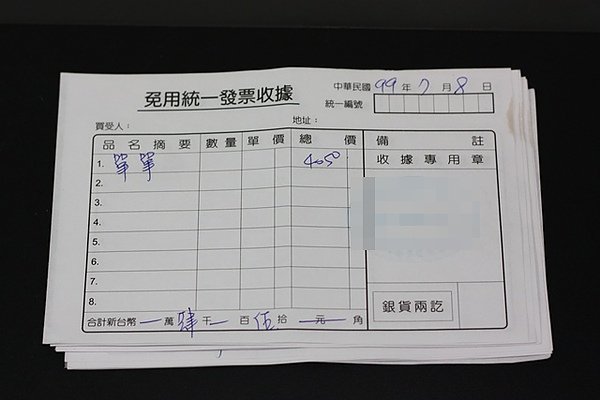 免用統一發票收據
中華民國 99 年 7 月 8 日
統一編號
買受人： 地址：
品名摘要 數量 單價 總價 備註
1. 單單 4050 收據專用章
2.
3.
4.
5.
6.
7.
8.
銀貨兩訖
合計新台幣 一 萬 肆 千 一 百 伍 拾 一 元 一 角